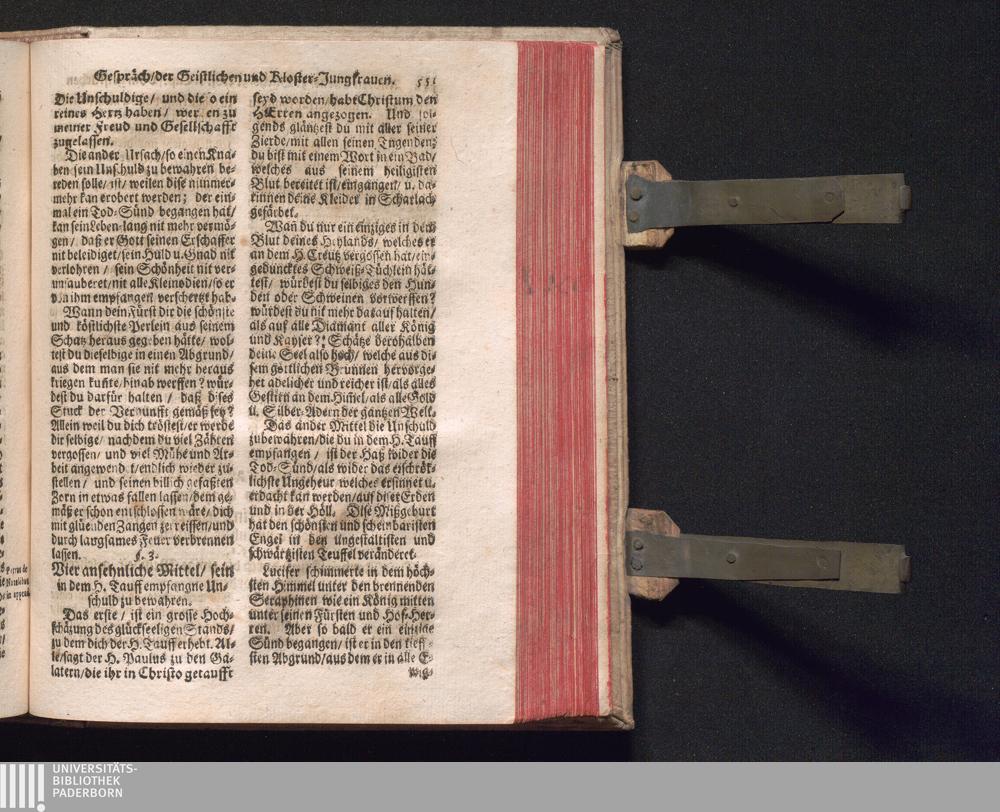 Gespräch/der Geistlichen und Kloster-Jungfrauen. 551
Die Unschuldige/ und die so ein
reines Hertz haben/ werden zu
meiner Freud und Gesellschafft
zugelassen.
Die ander Ursach/so einen Kna-
ben sein Unschuld zu bewahren be-
reden solle/ ist/ weilen dise nimmer-
mehr kan erobert werden; der ein-
mal ein Tod-Sünd begangen hat/
kan sein Leben-lang nit mehr vermö-
gen/ daß er Gott seinen Erschaffer
nit beleidiget/sein Huld u. Gnad nit
verlohren / sein Schönheit nit ver-
unsauberet/nit alle Kleinodien/so er
von ihm empfangen verschertzt hab.
Wann dein Fürst dir die schönste
und köstlichste Perlein aus seinem
Schatz heraus gegeben hätte/ wol-
test du dieselbige in einen Abgrund/
aus dem man sie nit mehr heraus
kriegen kunte/hinab werffen? wur-
dest du darfür halten / daß dises
Stuck der Vernunfft gemäß sey?
Allein weil du dich tröstest/er werde
dir selbige/ nachdem du viel Zähren
vergossen/ und viel Mühe und Ar-
beit angewendt/endlich wieder zu-
stellen / und seinen billich gefaßten
Zorn in etwas fallen lassen/dem ge-
mäß er schon entschlossen wäre/dich
mit glüenden Zangen zerreissen/und
durch langsames Feuer verbrennen
lassen. §. 3.
Vier ansehnliche Mittel/ sein
in dem H. Tauff empfangne Un-
schuld zu bewahren.
Das erste / ist ein grosse Hoch-
schätzung des glückseeligen Stands/
zu dem dich der H. Tauff erhebt. Al-
le/sagt der H. Paulus zu den Ga-
latern/die ihr in Christo getaufft
seyd worden/habt Christum den
HErren angezogen. Und fol-
gends gläntzest du mit aller seiner
Zierde/mit allen seinen Tugenden;
du bist mit einem Wort in ein Bad/
welches aus seinem heiligisten
Blut bereitet ist/eingangen/ u. da-
rinnen deine Kleider in Scharlach
gefärbet.
Wan du nur ein einziges in dem
Blut deines Heylands/ welches er
an dem H. Creutz vergossen hat/ein-
geduncktes Schweiß-Tüchlein hät-
test/ würdest du selbiges den Hun-
den oder Schweinen vorwerffen?
würdest du nit mehr darauf halten/
als auf alle Diamant aller König
und Kayser? Schätze derohalben
deine Seel also hoch/ welche aus di-
sem göttlichen Brunnen hervorge-
het adelicher und reicher ist/als alles
Gestirn an dem Himmel/als alle Gold
u. Silber-Adern der gantzen Welt.
Das ander Mittel die Unschuld
zubewahren/die du in dem H. Tauff
empfangen / ist der Haß wider die
Tod-Sünd/als wider das erschrök-
lichste Ungeheur welches ersinnet u.
erdacht kan werden/auf diser Erden
und in der Höll. Dise Mißgeburt
hat den schönsten und scheinbaristen
Engel in den ungestaltisten und
schwärtzisten Teuffel veränderet.
Lucifer schimmerte in dem höch-
sten Himmel unter den brennenden
Seraphinen wie ein König mitten
unter seinen Fürsten und Hof-Her-
ren. Aber so bald er ein einzige
Sünd begangen/ist er in den tieff-
sten Abgrund/aus dem er in alle E-
wig-
UNIVERSITÄTS-
BIBLIOTHEK
PADERBORN